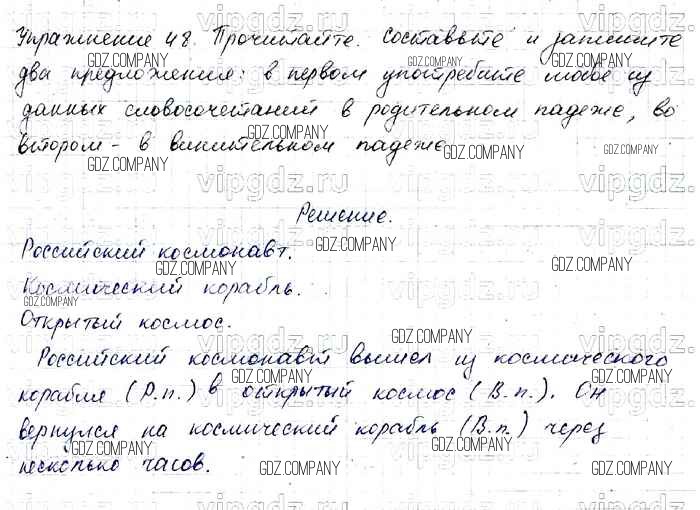 Упражнение 48. Прочитайте. Составьте и запишите
два предложения: в первом употребите любое из
данных словосочетаний в родительном падеже, во
втором - в винительном падеже.
Решение.
Российский космонавт.
Космический корабль.
Открытый космос.
Российский космонавт вышел из космического
корабля (Р.п.) в открытый космос (В.п.). Он
вернулся на космический корабль (В.п.) через
несколько часов.
vipgdz.ru
GDZ.COMPANY